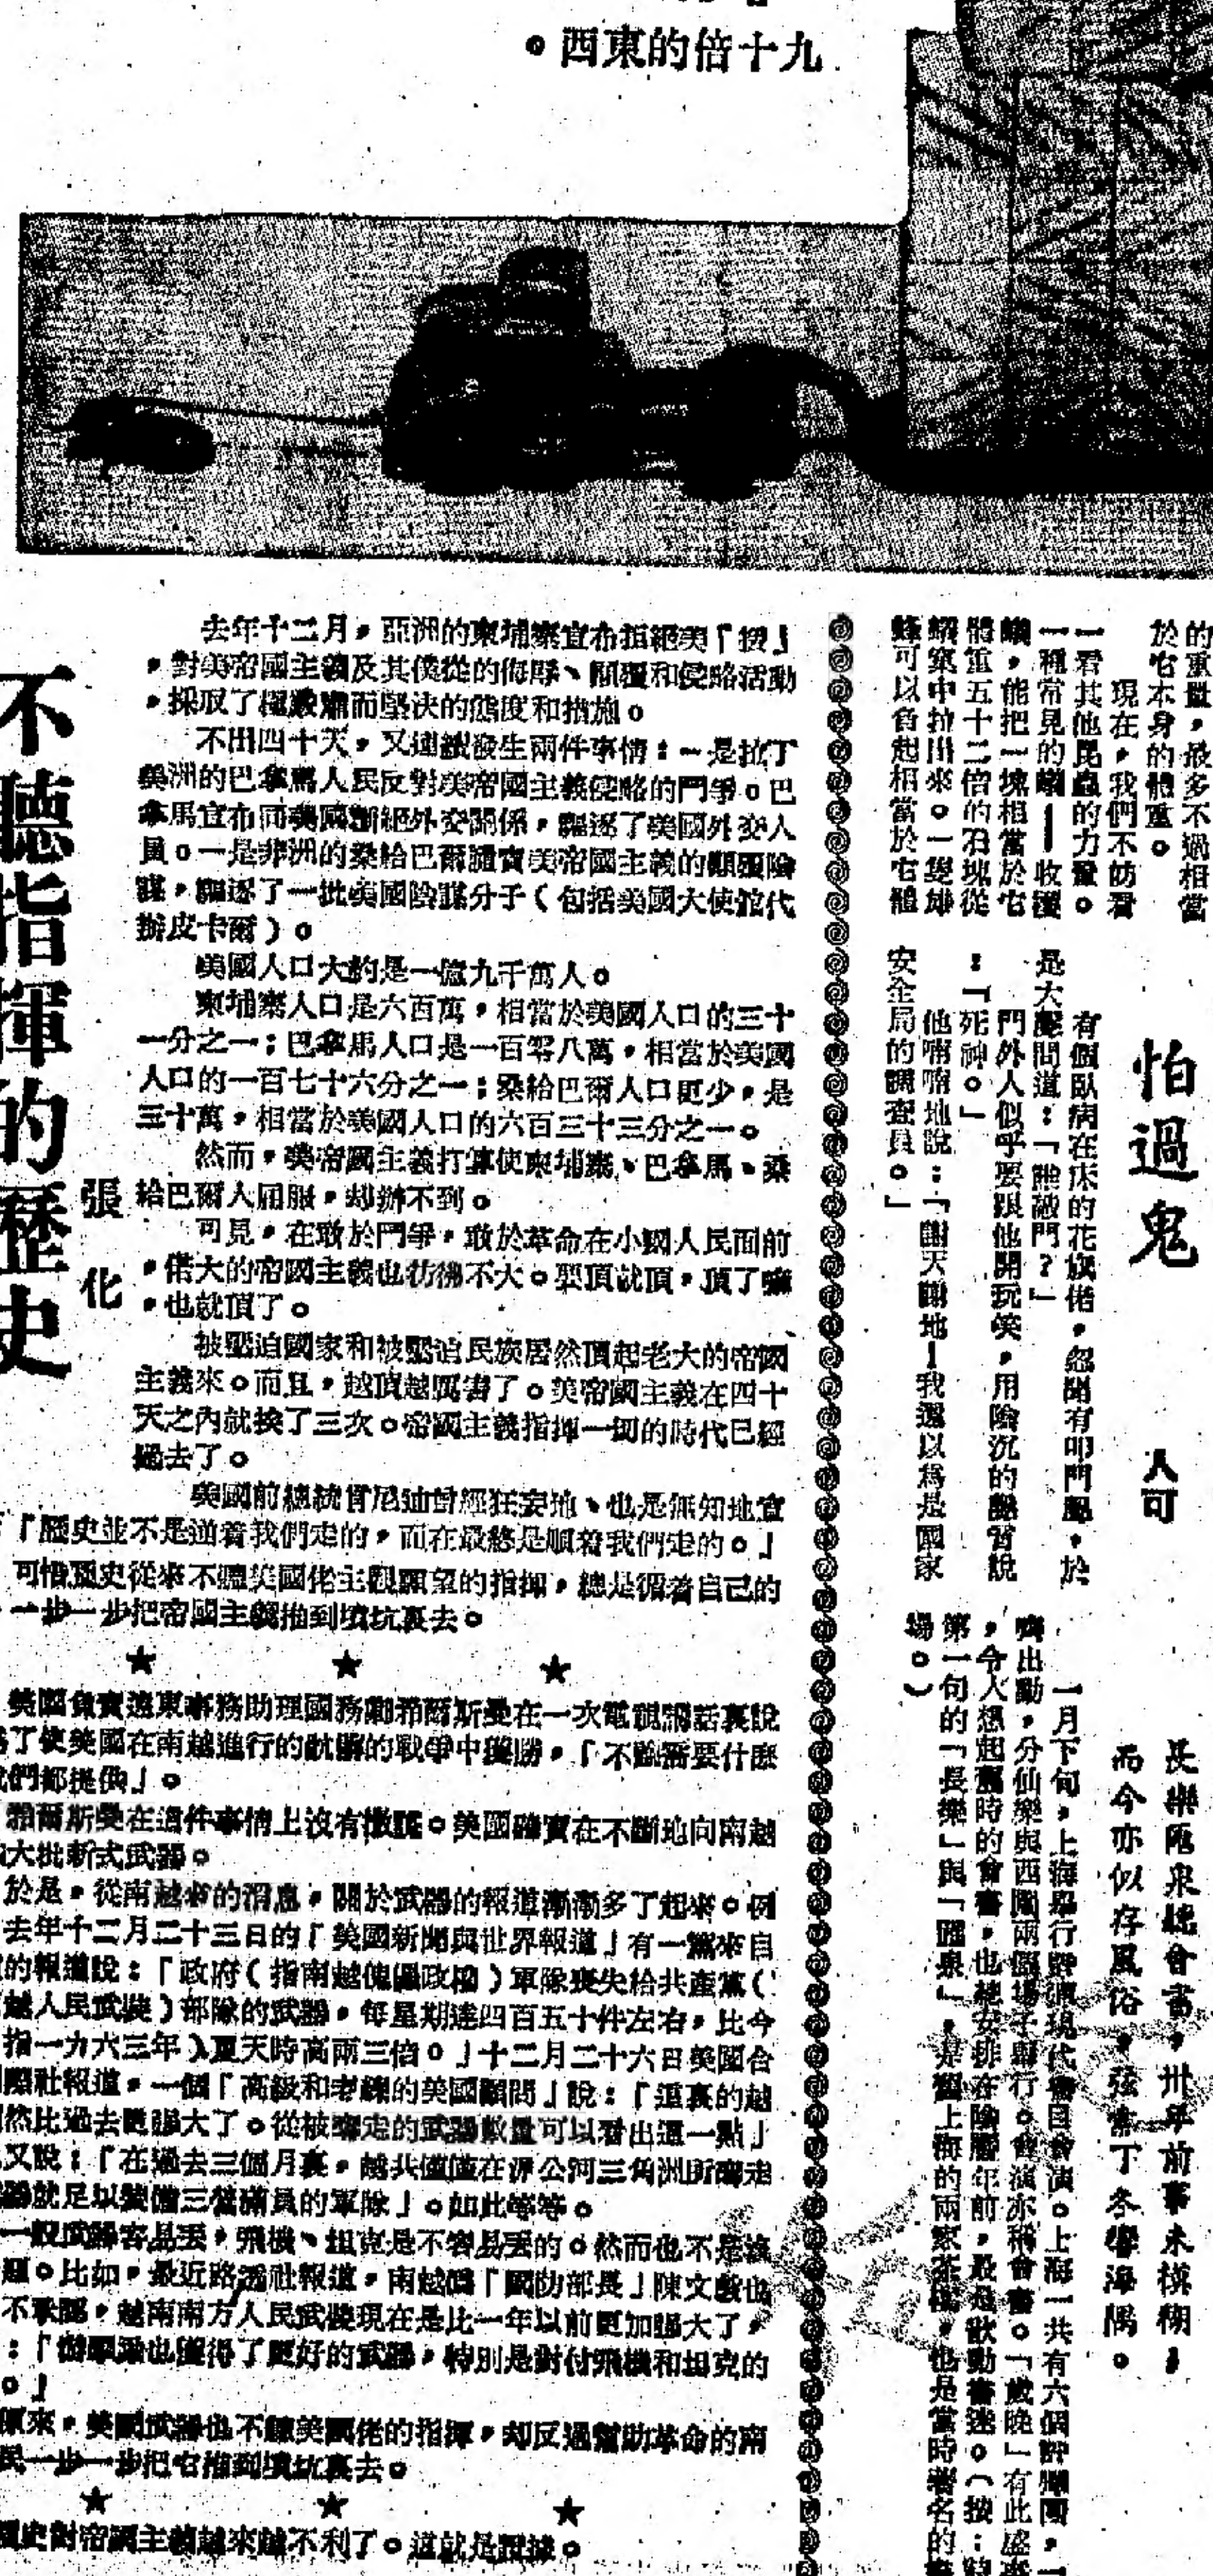 九十倍的東西。
的重量，最多不過相當
於它本身的體重。
現在，我們不妨看
一看其他昆蟲的力量。
一種常見的蟻——收穫
蟻，能把一塊相當於它
體重五十二倍的石塊從
蟻窠中拉出來。一隻雄
蜂可以負起相當於它體
怕過鬼
人可
有個臥病在床的花旗佬，忽聞有叩門聲，於
是大聲問道：「誰敲門？」
門外人似乎要跟他開玩笑，用陰沉的聲音說
：「死神。」
他喃喃地說：「謝天謝地！我還以為是國家
安全局的調查員。」
長樂 泉聽會書，卅年前事未模糊，
而今亦似存風俗，弦索丁冬響海隅。
一月下旬，上海舉行評彈現代書目會演。上海一共有六個評彈團，一
齊出動，分仙樂與西園兩個場子舉行。會演亦稱會書。「歲晚」有此盛
，令人想起舊時的會書，也總安排在陰曆年前，最是歡動書迷。（按：
第一句的「長樂」與「 泉」，是舊上海的兩家茶樓，也是當時著名的
場。）
不聽指揮的歷史
張化
去年十二月，亞洲的柬埔寨宣布拒絕美「援」
，對美帝國主義及其僕從的侮辱、顛覆和侵略活動
，採取了極嚴肅而堅決的態度和措施。
不出四十天，又連續發生兩件事情：一是拉丁
美洲的巴拿馬人民反對美帝國主義侵略的鬥爭。巴
拿馬宣布同美國斷絕外交關係，驅逐了美國外交人
員。一是非洲的桑給巴爾證實美帝國主義的顛覆陰
謀，驅逐了一批美國陰謀分子（包括美國大使館代
辦皮卡爾）。
美國人口大約是一億九千萬人。
柬埔寨人口是六百萬，相當於美國人口的三十
一分之一；巴拿馬人口是一百零八萬，相當於美國
人口的一百七十六分之一；桑給巴爾人口更少，是
三十萬，相當於美國人口的六百三十三分之一。
然而，美帝國主義打算使柬埔寨、巴拿馬、桑
給巴爾人屈服，却辦不到。
可見，在敢於鬥爭，敢於革命在小國人民面前
，偌大的帝國主義也彷彿不大。要頂就頂，頂了嘛
，也就頂了。
被壓迫國家和被壓迫民族居然頂起老大的帝國
主義來。而且，越頂越厲害了。美帝國主義在四十
天之內就挨了三次。帝國主義指揮一切的時代已經
過去了。
美國前總統肯尼迪曾經狂妄地、也是無知地宣
「歷史並不是逆着我們走的，而在最終是順着我們走的。」
可惜歷史從來不聽美國佬主觀願望的指揮，總是循着自己的
一步一步把帝國主義推到墳坑裏去。
★ ★ ★
美國負責遠東事務助理國務卿希爾斯曼在一次電視講話裏說
了使美國在南越進行的骯髒的戰爭中獲勝，「不論需要什麼
們都提供」。
希爾斯曼在這件事情上沒有撒謊。美國確實在不斷地向南越
大批新式武器。
於是，從南越來的消息，關於武器的報道漸漸多了起來。例
去年十二月二十三日的「美國新聞與世界報道」有一篇來自
的報道說：「政府（指南越傀儡政權）軍隊喪失給共產黨（
越人民武裝）部隊的武器，每星期達四百五十件左右，比今
指一九六三年）夏天時高兩三倍。」十二月二十六日美國合
際社報道，一個「高級和老練的美國顧問」說：「這裏的越
然比過去更強大了。從被奪走的武器數量可以看出這一點」
又說：「在過去三個月裏，越共僅僅在湄公河三角洲所奪走
器就足以裝備三營滿員的軍隊」。如此等等。
一般武器容易丟，飛機、坦克是不容易丟的。然而也不是沒
題。比如，最近路透社報道，南越僞「國防部長」陳文 也
不承認，越南南方人民武裝現在是比一年以前更加強大了，
：「 也獲得了更好的武器，特別是對付飛機和坦克的
。」
來，美國武器也不聽美國佬的指揮，却反過幫助革命的南
民一步一步把它推到墳坑裏去。
★ ★ ★
歷史對帝國主義越來越不利了。這就是證據。